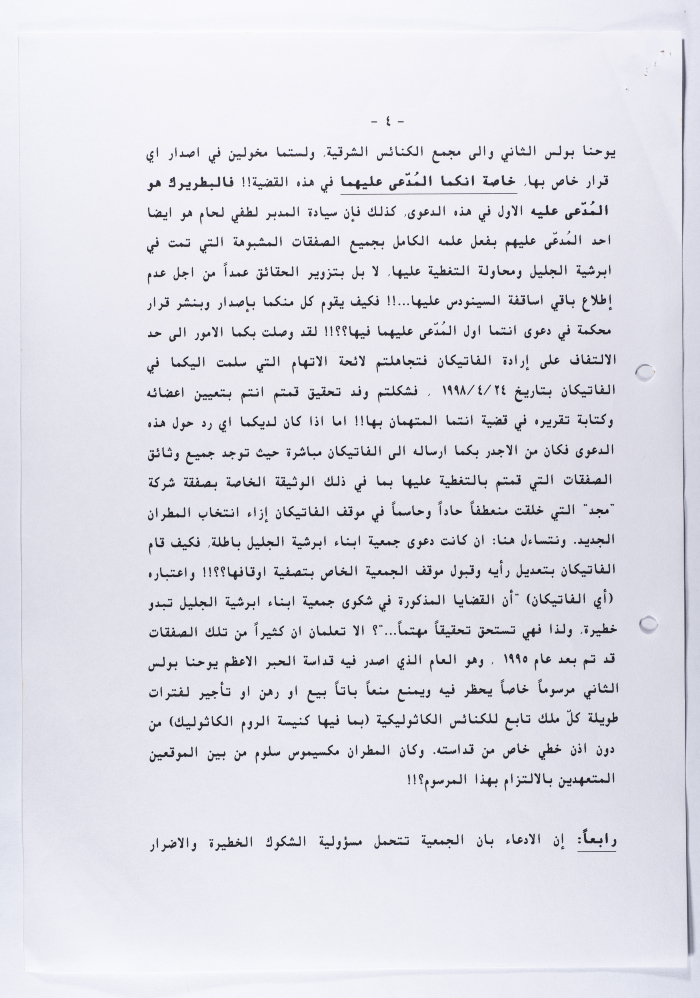 - ٤ -
يوحنا بولس الثاني والى مجمع الكنائس الشرقية، ولستما مخولين في اصدار اي
قرار خاص بها، خاصة انكما المُدّعى عليهما في هذه القضية!! فالبطريرك هو
المُدّعى عليه الاول في هذه الدعوى، كذلك فإن سيادة المدبر لطفي لحام هو ايضا
احد المُدعّى عليهم بفعل علمه الكامل بجميع الصفقات المشبوهة التي تمت في
ابرشية الجليل ومحاولة التغطية عليها، لا بل بتزوير الحقائق عمداً من اجل عدم
إطلاع باقي اساقفة السينودس عليها...!! فكيف يقوم كل منكما بإصدار وبنشر قرار
محكمة في دعوى انتما اول المُدّعى عليهما فيها؟؟!! لقد وصلت بكما الامور الى حد
الالتفاف على إرادة الفاتيكان فتجاهلتم لائحة الاتهام التي سلمت اليكما في
الفاتيكان بتاريخ ١٩٩٨/٤/٢٤ ، فشكلتم وفد تحقيق قمتم انتم بتعيين اعضائه
وكتابة تقريره في قضية انتما المتهمان بها!! اما اذا كان لديكما اي رد حول هذه
الدعوى فكان من الاجدر بكما ارساله الى الفاتيكان مباشرة حيث توجد جميع وثائق
الصفقات التي قمتم بالتغطية عليها بما في ذلك الوثيقة الخاصة بصفقة شركة
"مجد" التي خلقت منعطفاً حاداً وحاسماً في موقف الفاتيكان إزاء انتخاب المطران
الجديد. ونتساءل هنا: ان كانت دعوى جمعية ابناء ابرشية الجليل باطلة، فكيف قام
الفاتيكان بتعديل رأيه وقبول موقف الجمعية الخاص بتصفية اوقافها؟؟!! واعتباره
(أي الفاتيكان) "أن القضايا المذكورة في شكوى جمعية ابناء ابرشية الجليل تبدو
خطيرة، ولذا فهي تستحق تحقيقاً مهتماً..."؟ الا تعلمان ان كثيراً من تلك الصفقات
قد تم بعد عام ١٩٩٥ ، وهو العام الذي اصدر فيه قداسة الحبر الاعظم يوحنا بولس
الثاني مرسوماً خاصاً يحظر فيه ويمنع منعاً باتاً بيع او رهن او تأجير لفترات
طويلة كلّ ملك تابع للكنائس الكاثوليكية (بما فيها كنيسة الروم الكاثوليك) من
دون اذن خطي خاص من قداسته. وكان المطران مكسيموس سلوم من بين الموقعين
المتعهدين بالالتزام بهذا المرسوم؟!!
رابعاً: إن الادعاء بان الجمعية تتحمل مسؤولية الشكوك الخطيرة والاضرار